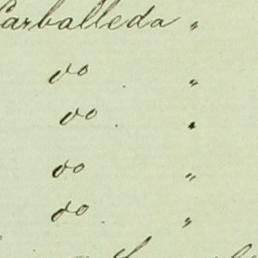 Carballeda "
do "
do . "
do "
do . "